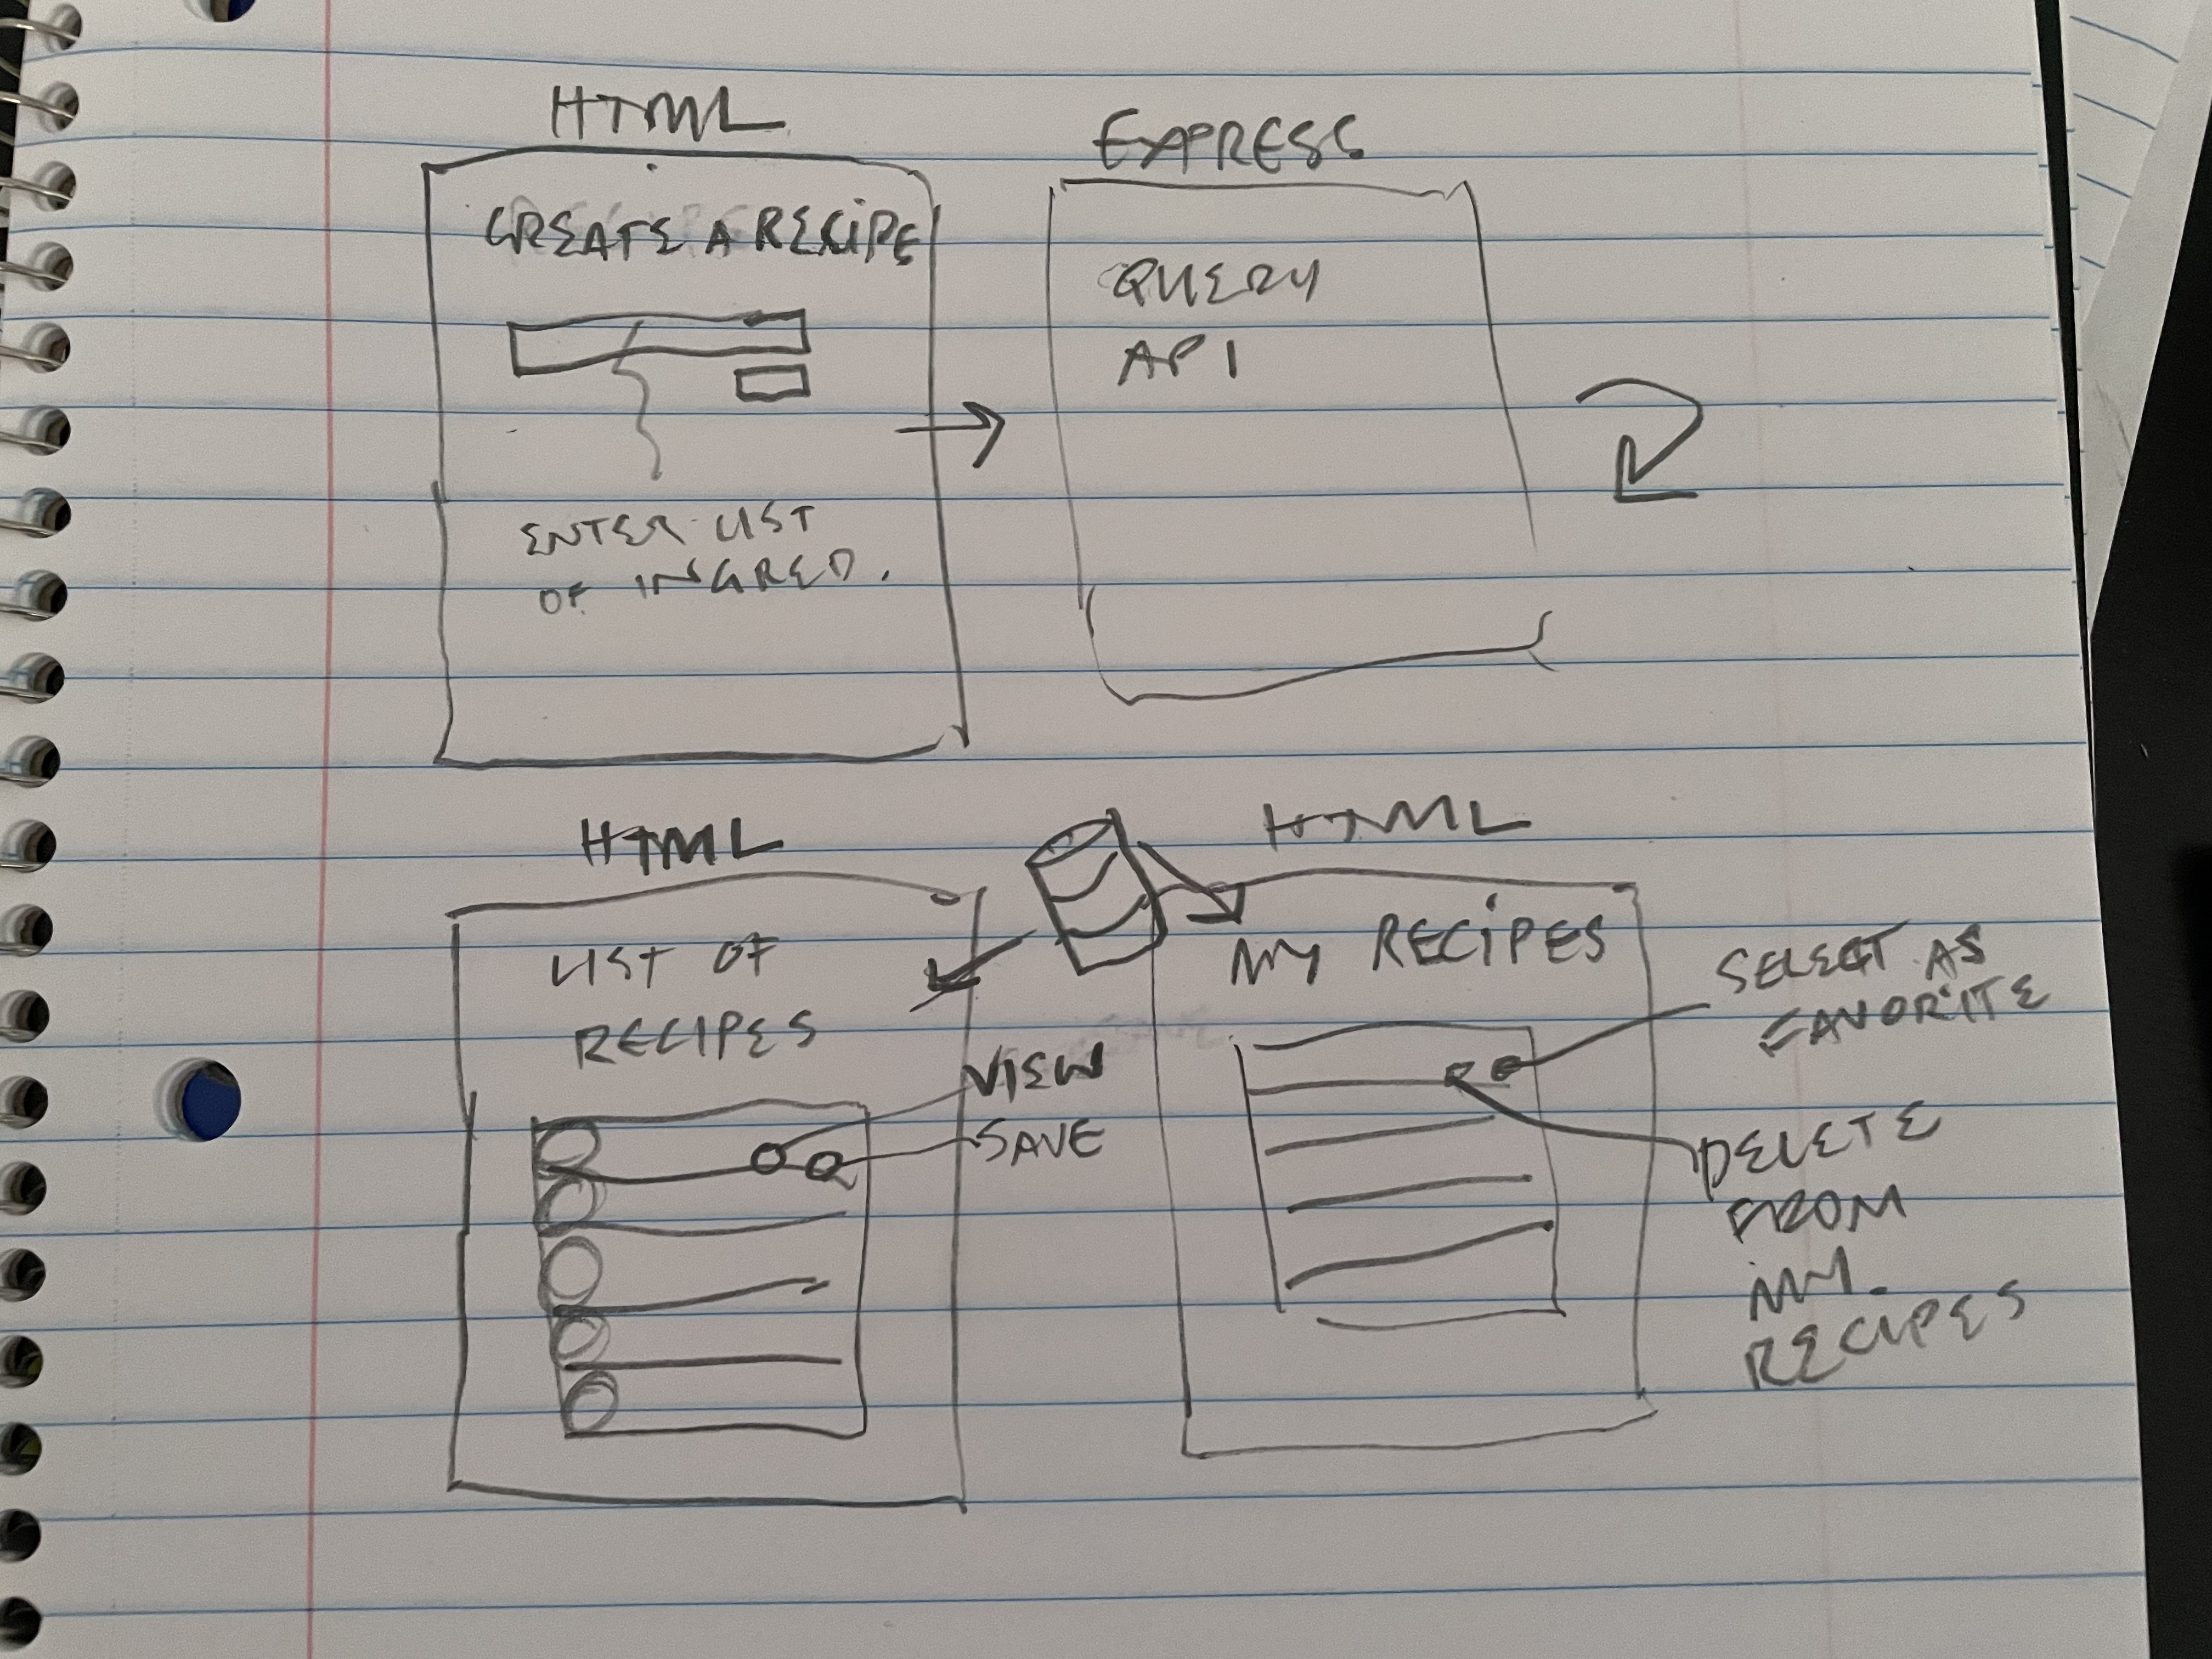 HTML
CREATE A RECIPE
ENTER LIST
OF INGRED.
EXPRESS
QUERY
API
HTML
LIST OF
RECIPES
VIEW
SAVE
HTML
MY RECIPES
SELECT AS
FAVORITE
DELETE
FROM
MY
RECIPES